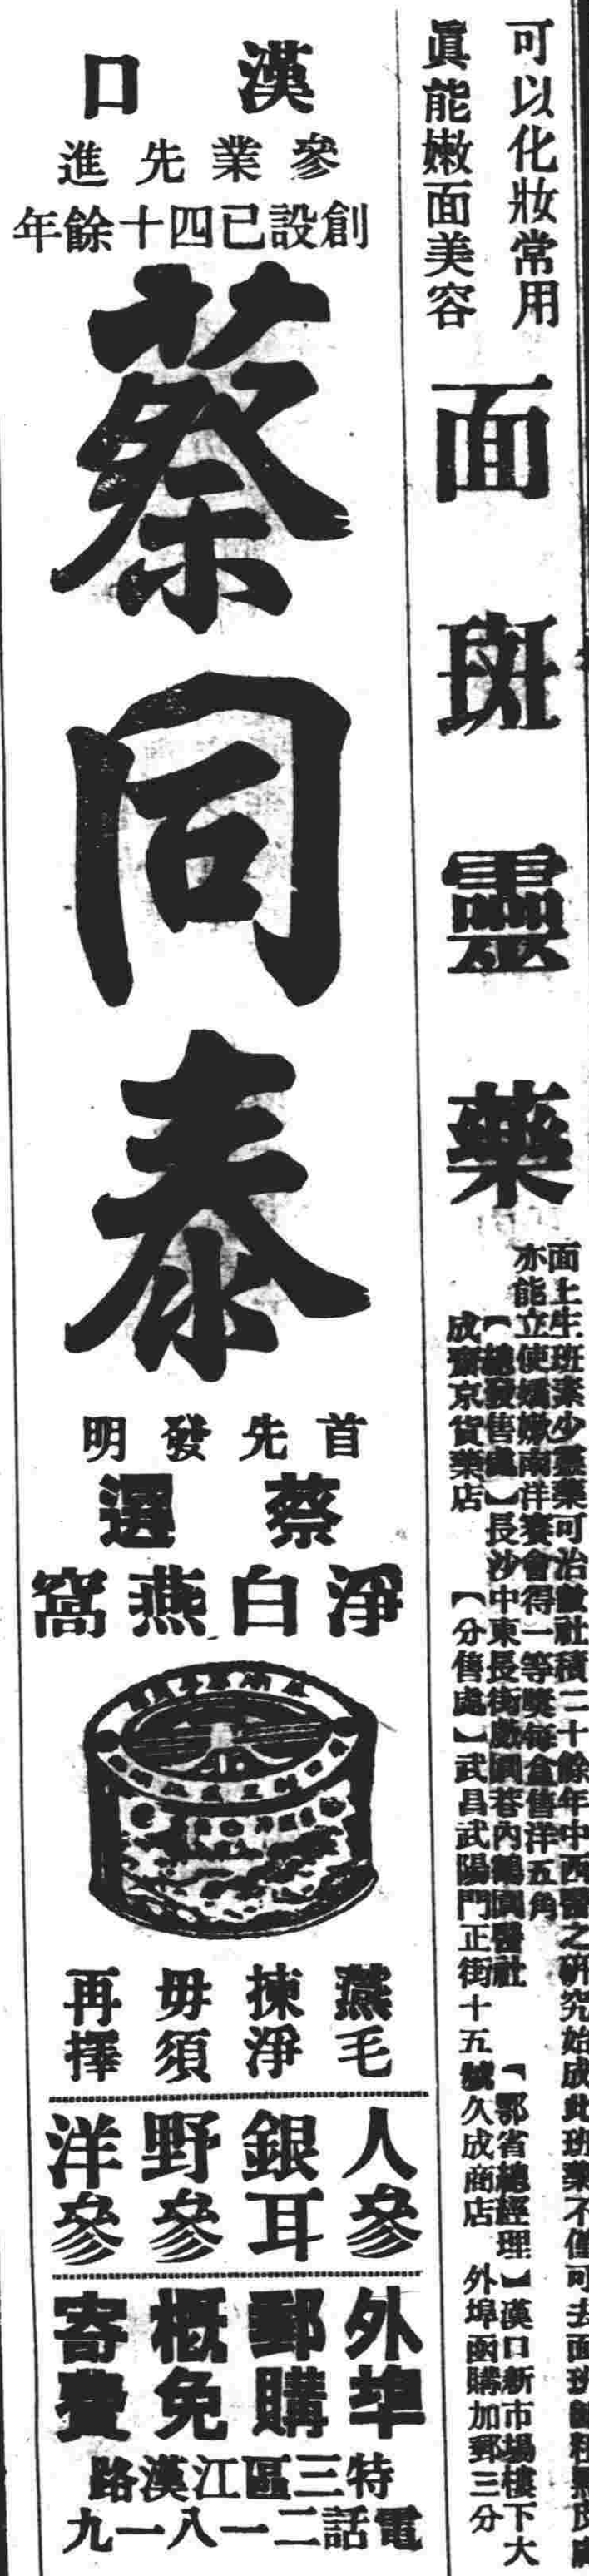 可以化妝常用
眞能嫩面美容
面斑靈藥
面上生斑素少靈藥可治敝社積二十餘年中西醫之硏究始成此班藥不僅可去面班
亦能立使嬌嫩南洋賽會得一等獎每盒售洋五角
【總發售處】長沙中東長街戲園巷內鶴園醫社
【鄂省總經理】漢口新市塲樓下大
成齋京貨藥店
【分售處】武昌武陽門正街十五號久成商店
外埠函購加郵三分
漢口
參業先進
創設已四十餘年
蔡同泰
首先發明
蔡選
淨白燕窩
燕毛
揀淨
毋須
再擇
人參
銀耳
野參
洋參
外埠
郵購
概免
寄費
特三區江漢路
電話二一八一九